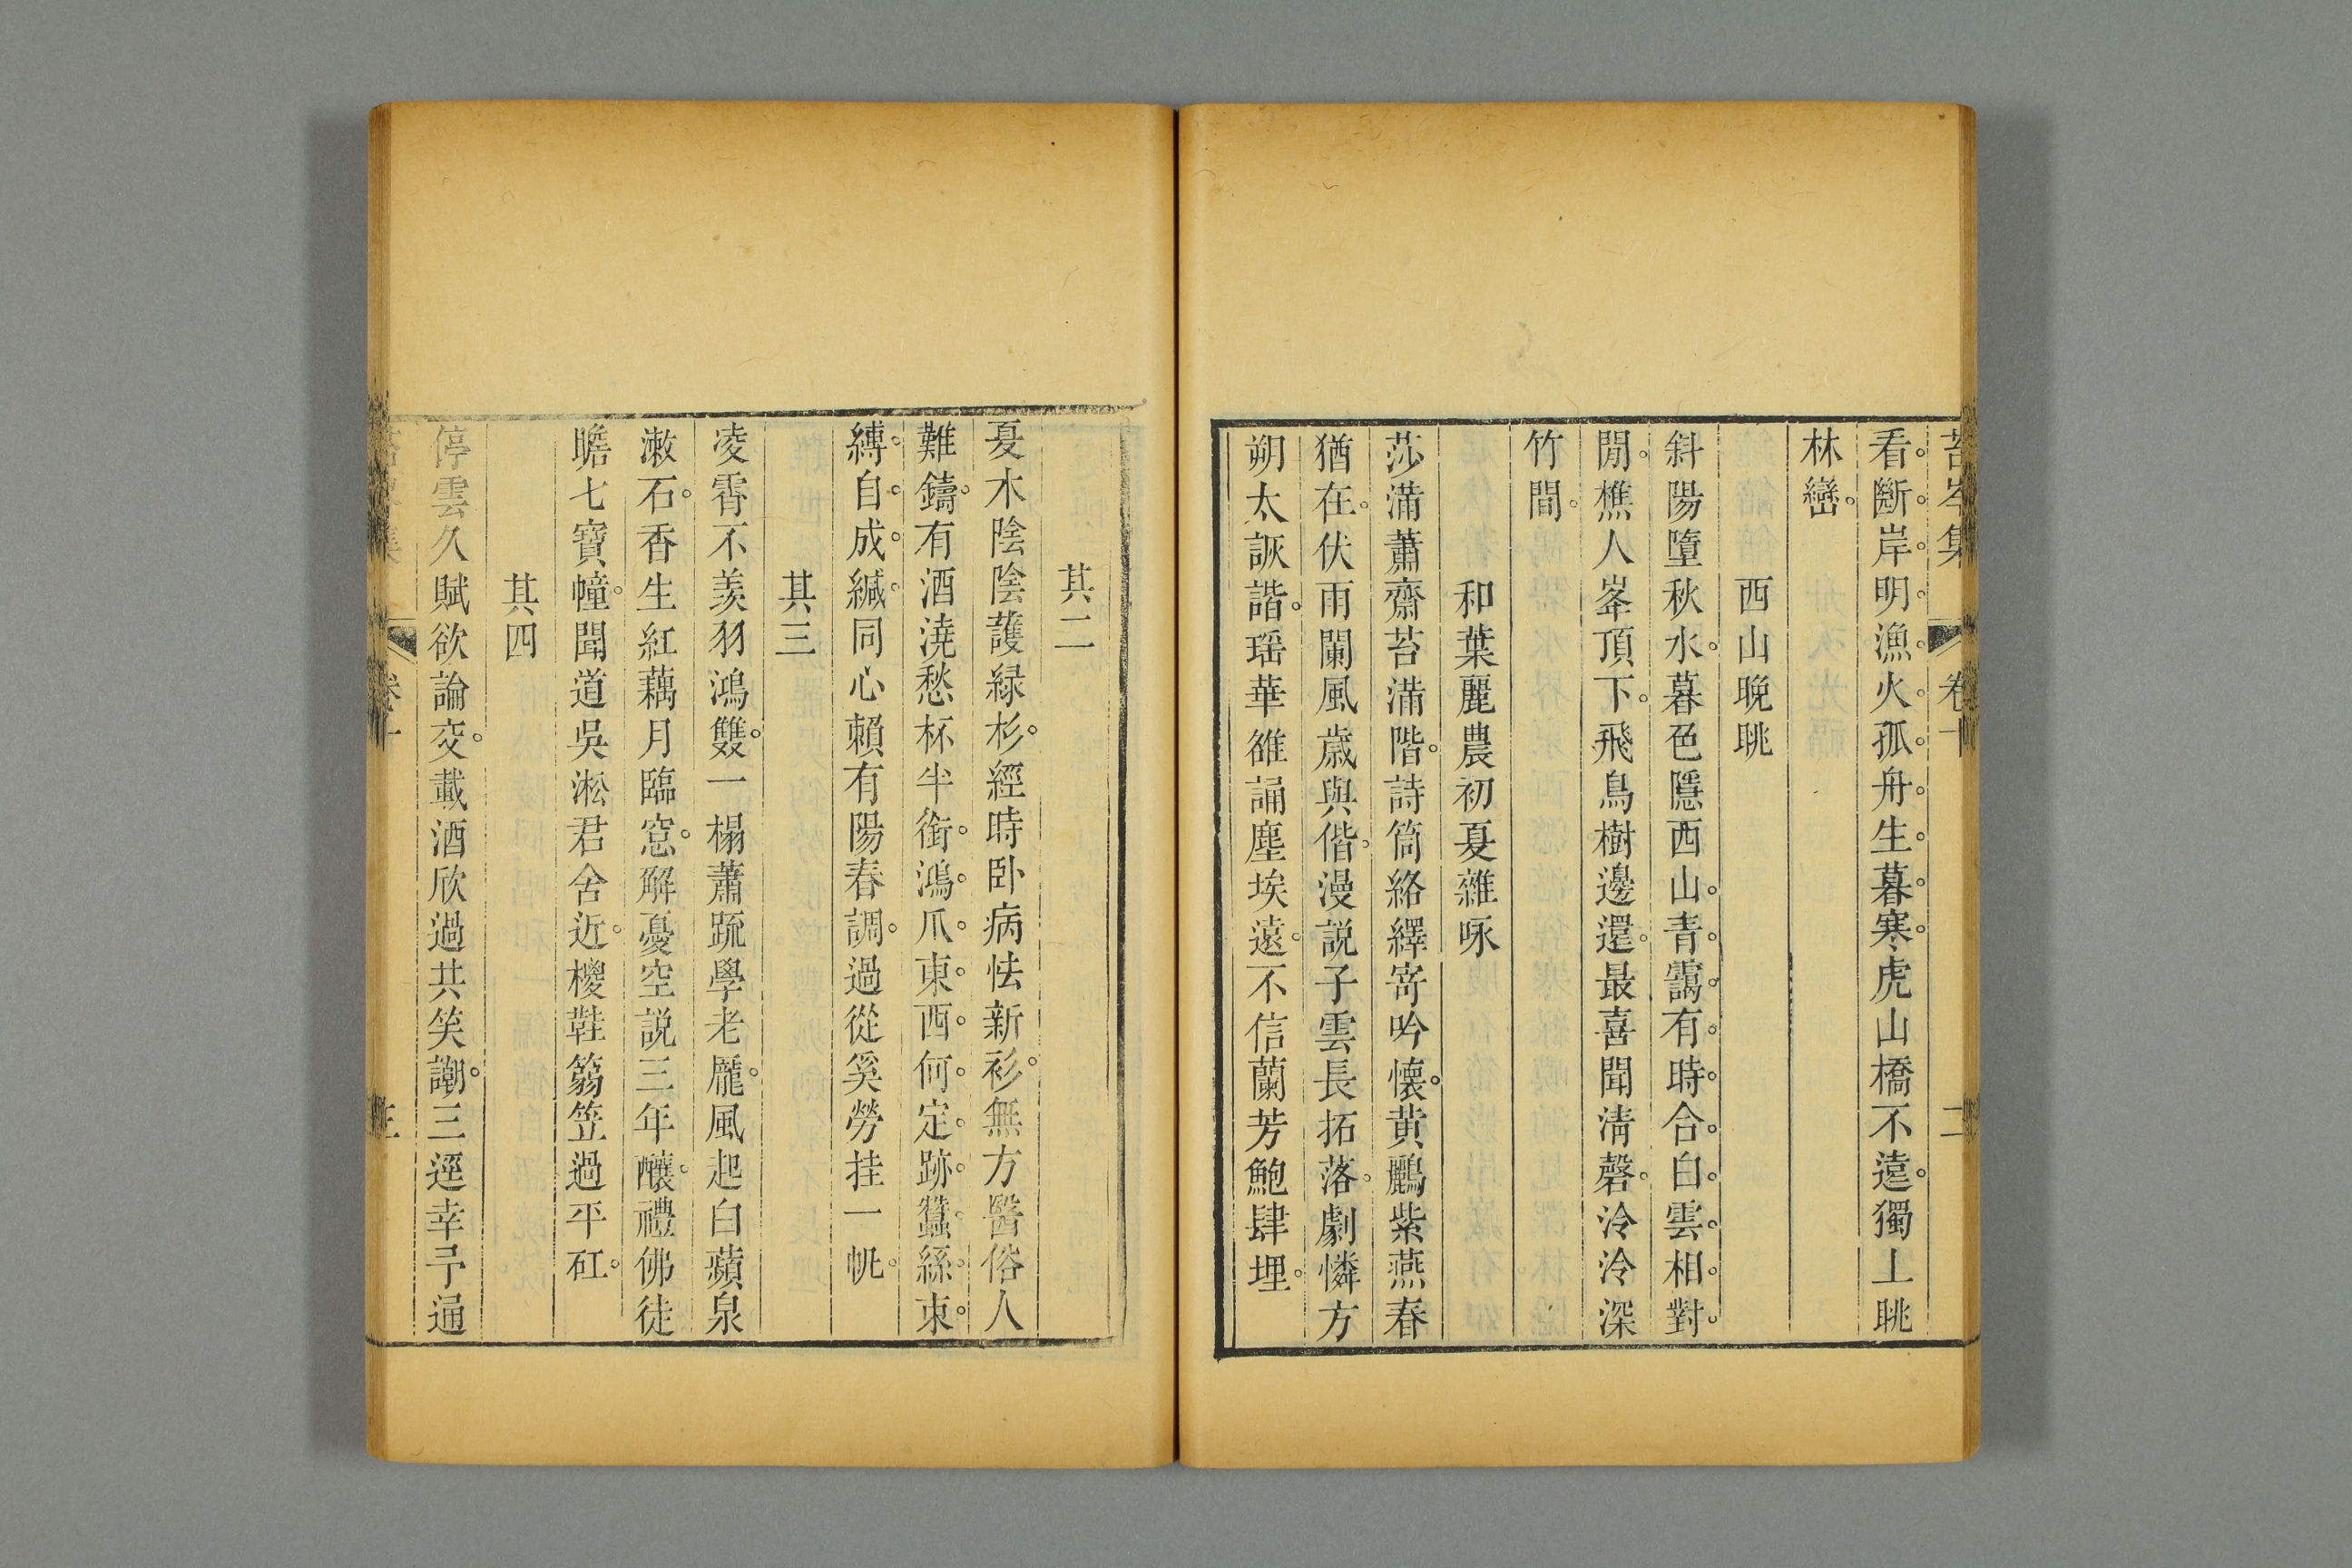 苔岑集 卷十 二
看斷岸明漁火孤舟生暮寒虎山橋不遠獨上眺
林巒
西山晚眺
斜陽墮秋水暮色隱西山青靄有時合白雲相對
閒樵人峯頂下飛鳥樹邊還最喜聞清磬泠泠深
竹間
和葉麗農初夏雜咏
莎滿蕭齋苔滿階詩筒絡繹寄吟懷黃鸝紫燕春
猶在伏雨闌風歲與偕漫説子雲長拓落劇憐方
朔太詼諧瑶華雒誦塵埃遠不信蘭芳鮑肆埋
其二
夏木陰陰護緑杉經時卧病怯新衫無方醫俗人
難鑄有酒澆愁杯半銜鴻爪東西何定跡蠶絲束
縛自成緘同心賴有陽春調過從奚勞挂一帆
其三
凌霄不羨羽鴻雙一榻蕭疏學老龐風起白蘋泉
漱石香生紅藕月臨窓解憂空説三年釀禮佛徒
瞻七寶幢聞道吳淞君舍近椶鞋篛笠過平矼
其四
停雲久賦欲論交載酒欣過共笑謿三逕幸予通
卷十